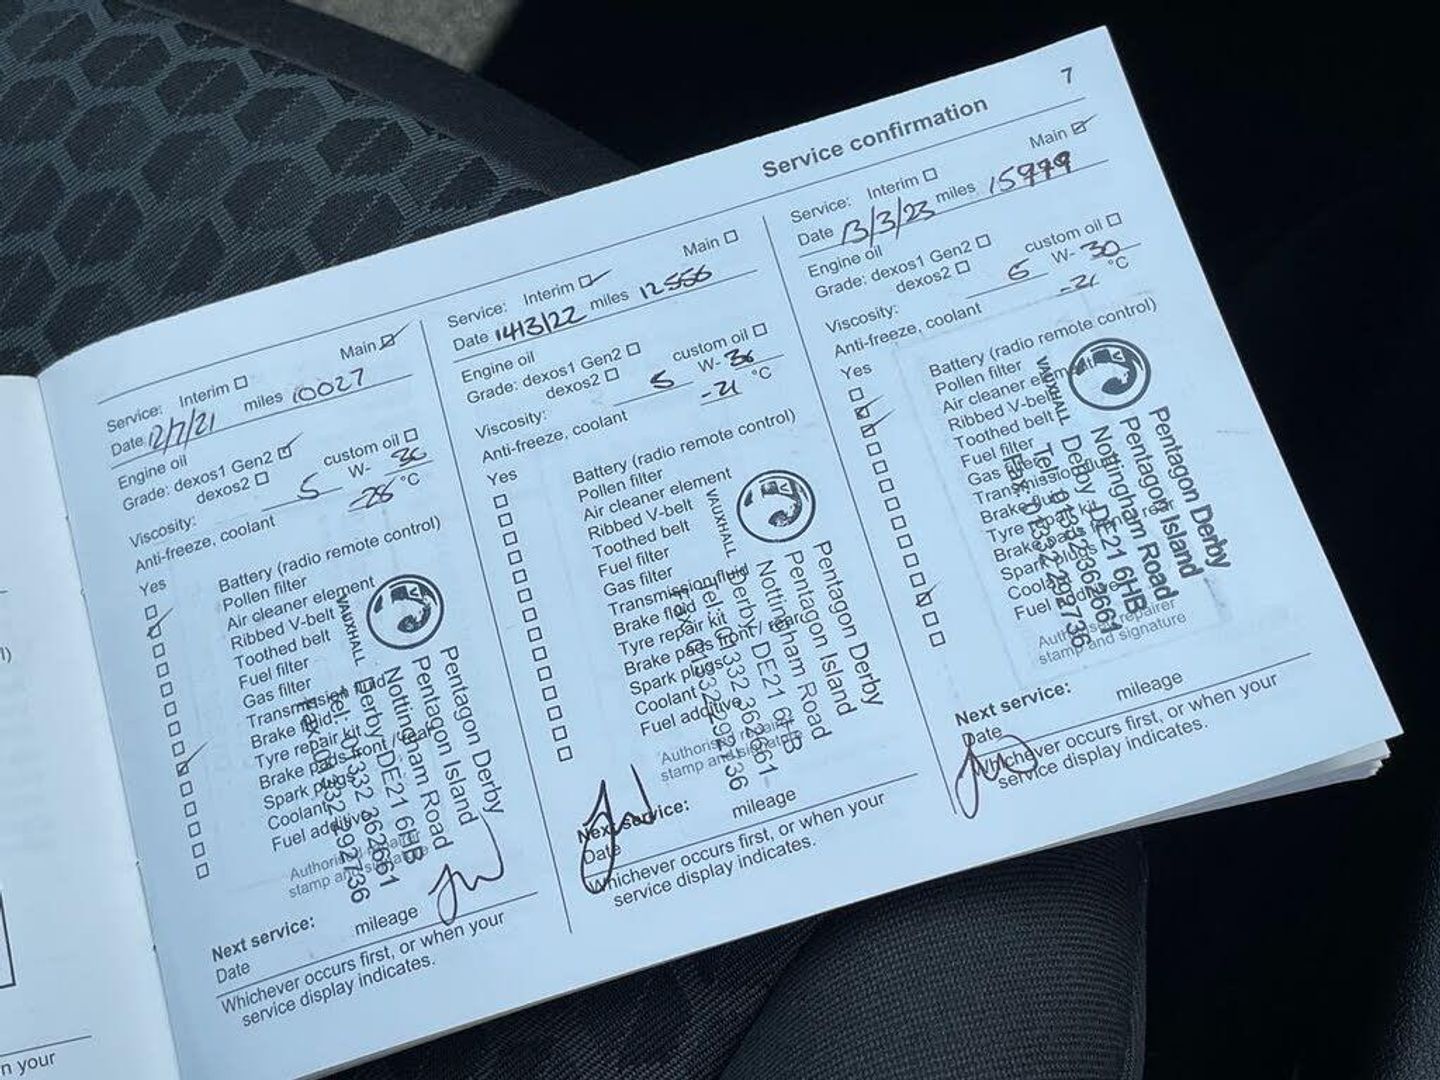 7
Service confirmation
Service: Interim Main
Date 12/7/21 miles 10027
Engine oil
Grade: dexos1 Gen2 custom oil
dexos2
Viscosity: 5 W- 30
Anti-freeze, coolant -26 °C
Yes
Battery (radio remote control)
Pollen filter
Air cleaner element
Ribbed V-belt
Toothed belt
Fuel filter
Gas filter
Transmission fluid
Brake fluid
Tyre repair kit
Brake pads front / rear
Spark plugs
Coolant
Fuel additive
Authorised repairer
stamp and signature
VAUXHALL
Pentagon Derby
Pentagon Island
Nottingham Road
Derby DE21 6HB
Tel: 01332 362661
Fax: 01332 292736
Next service:
Date mileage
Whichever occurs first, or when your
service display indicates.
Service: Interim Main
Date 14/3/22 miles 12556
Engine oil
Grade: dexos1 Gen2 custom oil
dexos2
Viscosity: 5 W- 30
Anti-freeze, coolant -21 °C
Yes
Battery (radio remote control)
Pollen filter
Air cleaner element
Ribbed V-belt
Toothed belt
Fuel filter
Gas filter
Transmission fluid
Brake fluid
Tyre repair kit
Brake pads front / rear
Spark plugs
Coolant
Fuel additive
Authorised repairer
stamp and signature
VAUXHALL
Pentagon Derby
Pentagon Island
Nottingham Road
Derby DE21 6HB
Tel: 01332 362661
Fax: 01332 292736
Next service:
Date mileage
Whichever occurs first, or when your
service display indicates.
Service: Interim Main
Date 13/3/23 miles 15979
Engine oil
Grade: dexos1 Gen2 custom oil
dexos2
Viscosity: 5 W- 30
Anti-freeze, coolant -21 °C
Yes
Battery (radio remote control)
Pollen filter
Air cleaner element
Ribbed V-belt
Toothed belt
Fuel filter
Gas filter
Transmission fluid
Brake fluid
Tyre repair kit
Brake pads front / rear
Spark plugs
Coolant
Fuel additive
Authorised repairer
stamp and signature
VAUXHALL
Pentagon Derby
Pentagon Island
Nottingham Road
Derby DE21 6HB
Tel: 01332 362661
Fax: 01332 292736
Next service:
Date mileage
Whichever occurs first, or when your
service display indicates.
n your